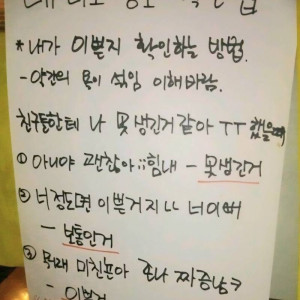 * 내가 이쁜지 확인하는 방법.
- 약간의 욕이 섞임 이해바람.
친구들한테 나 못생긴거같아 ㅜㅜ 했을때
① 아니야 괜찮아;; 힘내 - 못생긴거
② 너정도면 이쁜거지 ㄴㄴ 너이뻐
- 보통인거
③ 뭐래 미친년아 존나 짜증남ㅋ
- 이쁜거